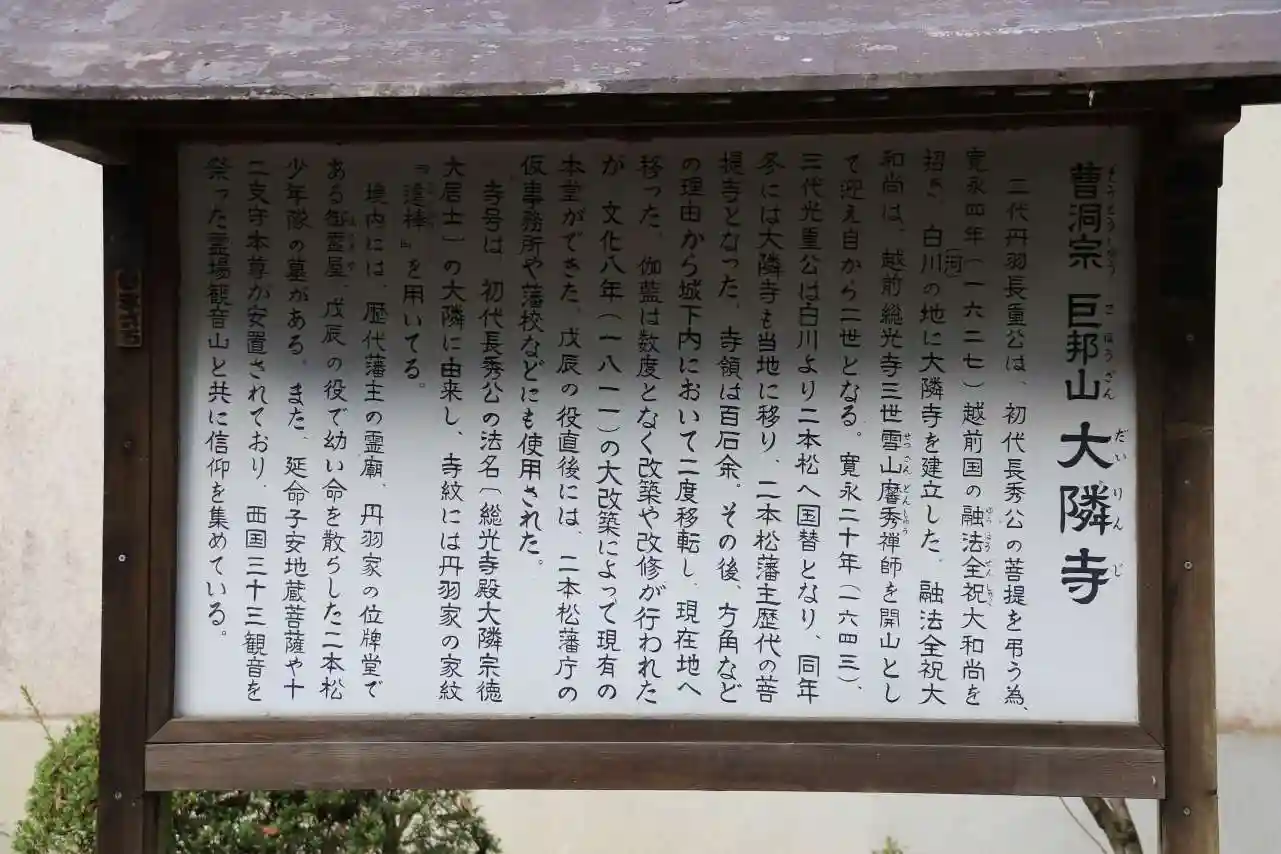 曹洞宗 巨邦山 大隣寺
二代丹羽長重公は、初代長秀公の菩提を弔う為、
寛永四年(一六二七)越前国の融法全祝大和尚を
招き、白川(河)の地に大隣寺を建立した。融法全祝大
和尚は、越前総光寺三世雪山麐秀禅師を開山とし
て迎え自から二世となる。寛永二十年(一六四三)、
三代光重公は白川より二本松へ国替となり、同年
冬には大隣寺も当地に移り、二本松藩主歴代の菩
提寺となった。寺領は百石余。その後、方角など
の理由から城下内において二度移転し、現在地へ
移った。伽藍は数度となく改築や改修が行われた
が、文化八年(一八一一)の大改築によって現有の
本堂ができた。戊辰の役直後には、二本松藩庁の
仮事務所や藩校などにも使用された。
寺号は、初代長秀公の法名(総光寺殿大隣宗徳
大居士)の大隣に由来し、寺紋には丹羽家の家紋
『違棒』を用いてる。
境内には、歴代藩主の霊廟、丹羽家の位牌堂で
ある御霊屋、戊辰の役で幼い命を散らした二本松
少年隊の墓がある。また、延命子安地蔵菩薩や十
二支守本尊が安置されており、西国三十三観音を
祭った霊場観音山と共に信仰を集めている。